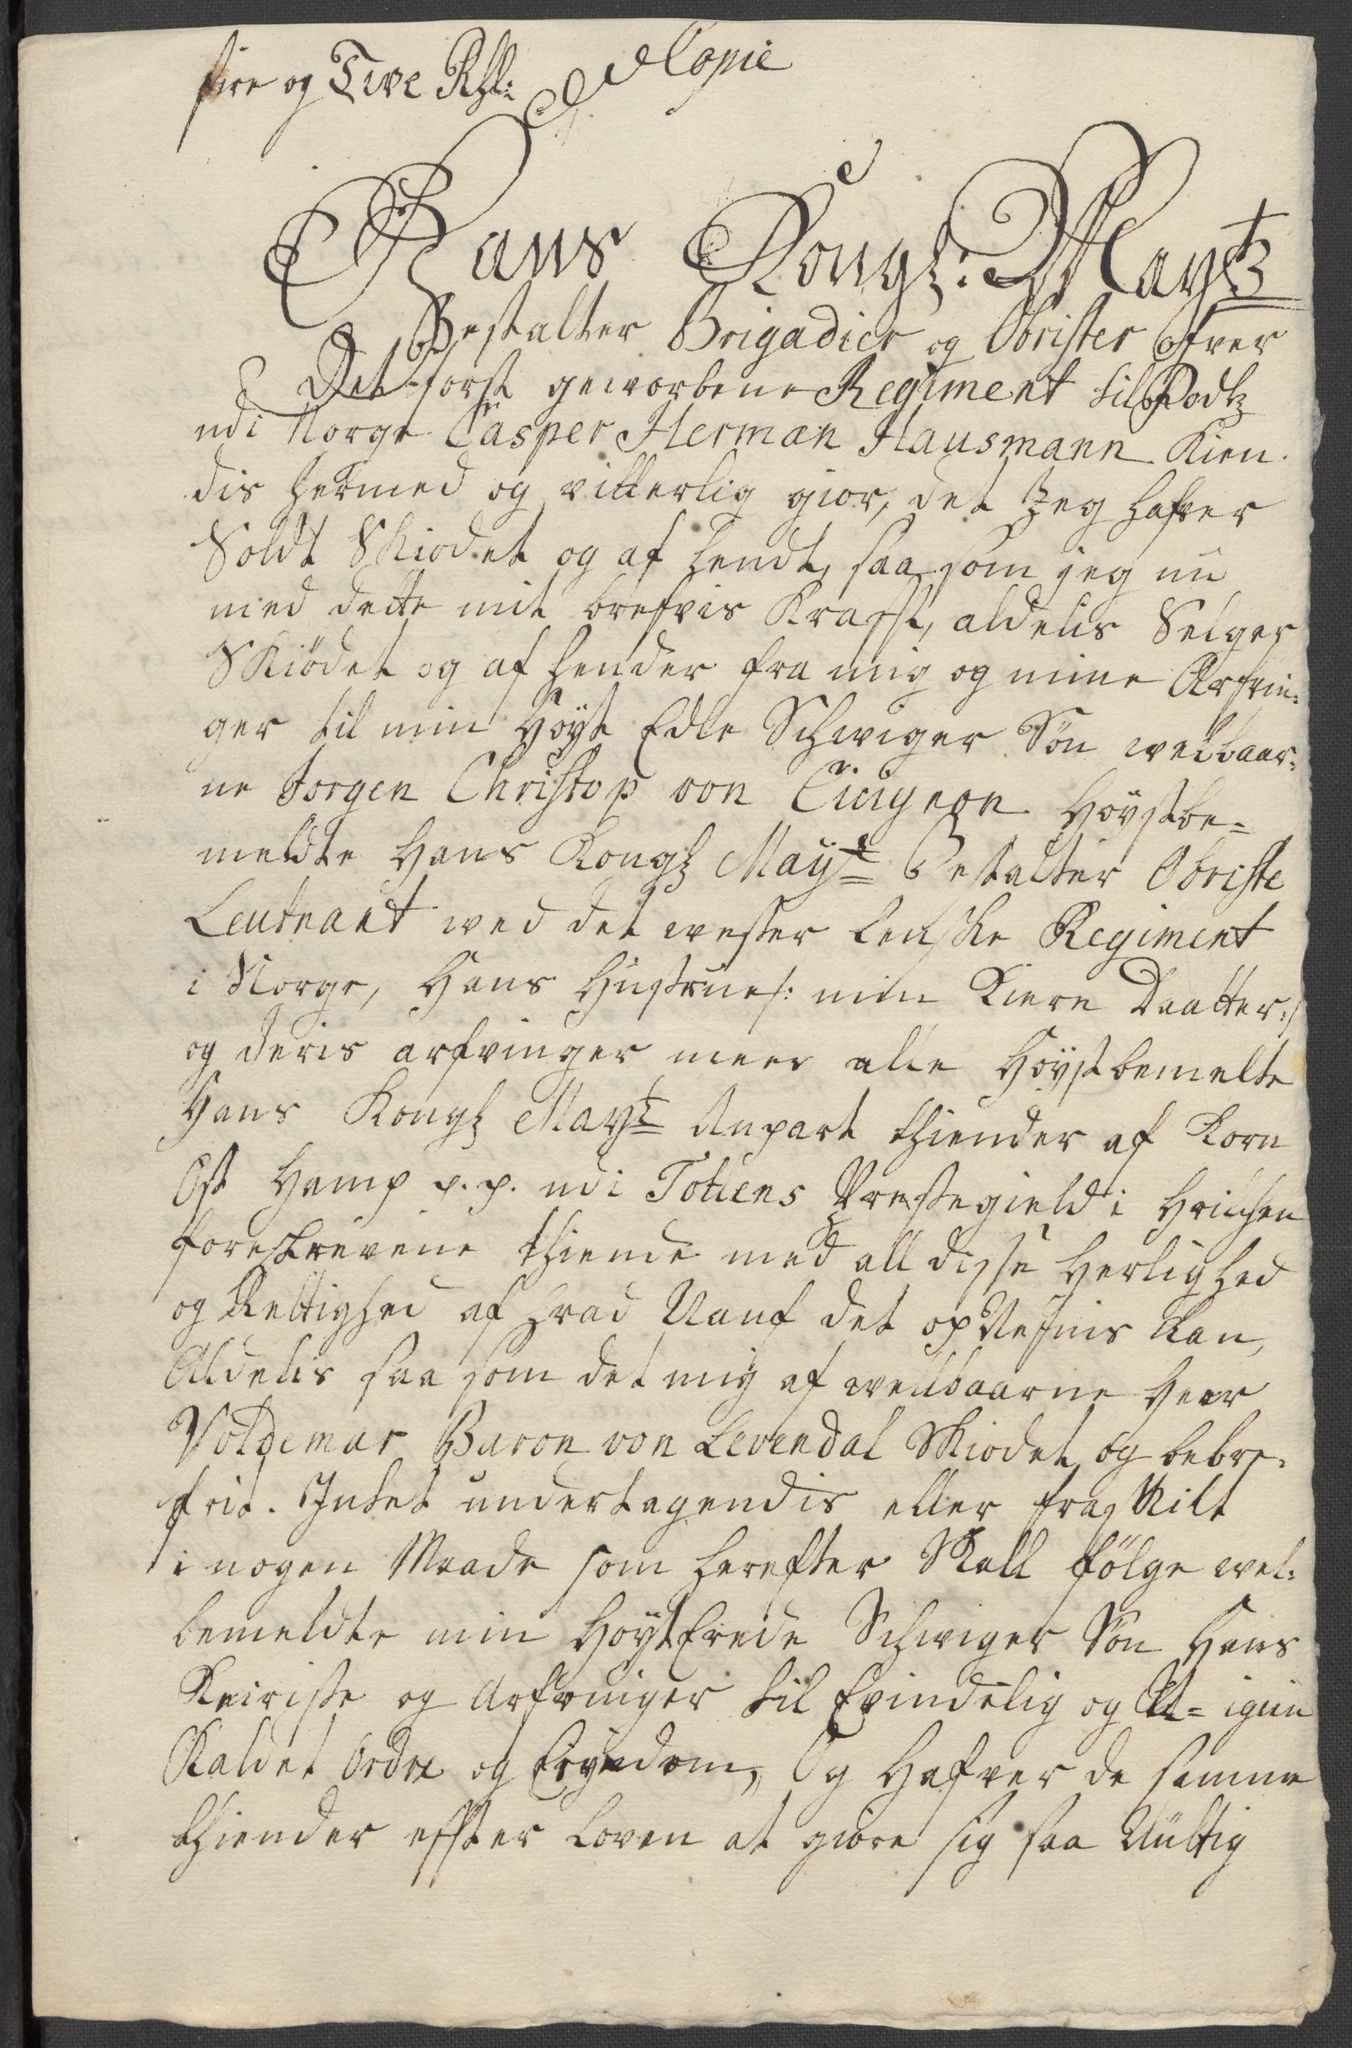 fire og Tive Rdl: Copie
Hans Kongl: Mayts
Bestalter Brigadier og Obrister ofver
Det først geworbene Regiment til Fodtz
udi Norge Casper Herman Hausmann Kien
dis hermed og vitterlig giør, det Jeg hafver
Soldt Skiødet og af hendt, saa som jeg nu
med dette mit brefvis Krafft, aldelis Selger
Skiødet og af hender fra mig og mine Arfvin:
ger til min Høyt Edle Schwiger Søn welbaar:
ne Jorgen Christop von Høystbe=
meldte Hans Kongl Mayts Bestalter Obriste
Leutnant wed det wester lenske Regiment
i Norge, Hans Hustrue/: min Kiere Daatter:/
og deris arfvinger meer alle Høystbemelte
Hans Kongl Mayts Anpart thiender af Korn
Ost Hamp p. p. udi Totens Prestegield i Hvilchen
foreskrevene thiende med all disse Herlighed
og Rettighed af hvad Nanf det opNefnis Kan,
Aldelis saa som det mig af wellbaarne Herr
Voldemar Baron von Levendal Skiodet og bebre:
fvit. Intet undertagendis eller fraskilt
i nogen Maade som herefter Skall følge wel:
bemeldte min Høyt Erede Schwiger Søn Hans
og Arfvinger til Evindelig og U= igien
Kaldet Odel og Eyendom, Og Hafver de samme
thiender effter Loven at giøre sig saa Nüttig